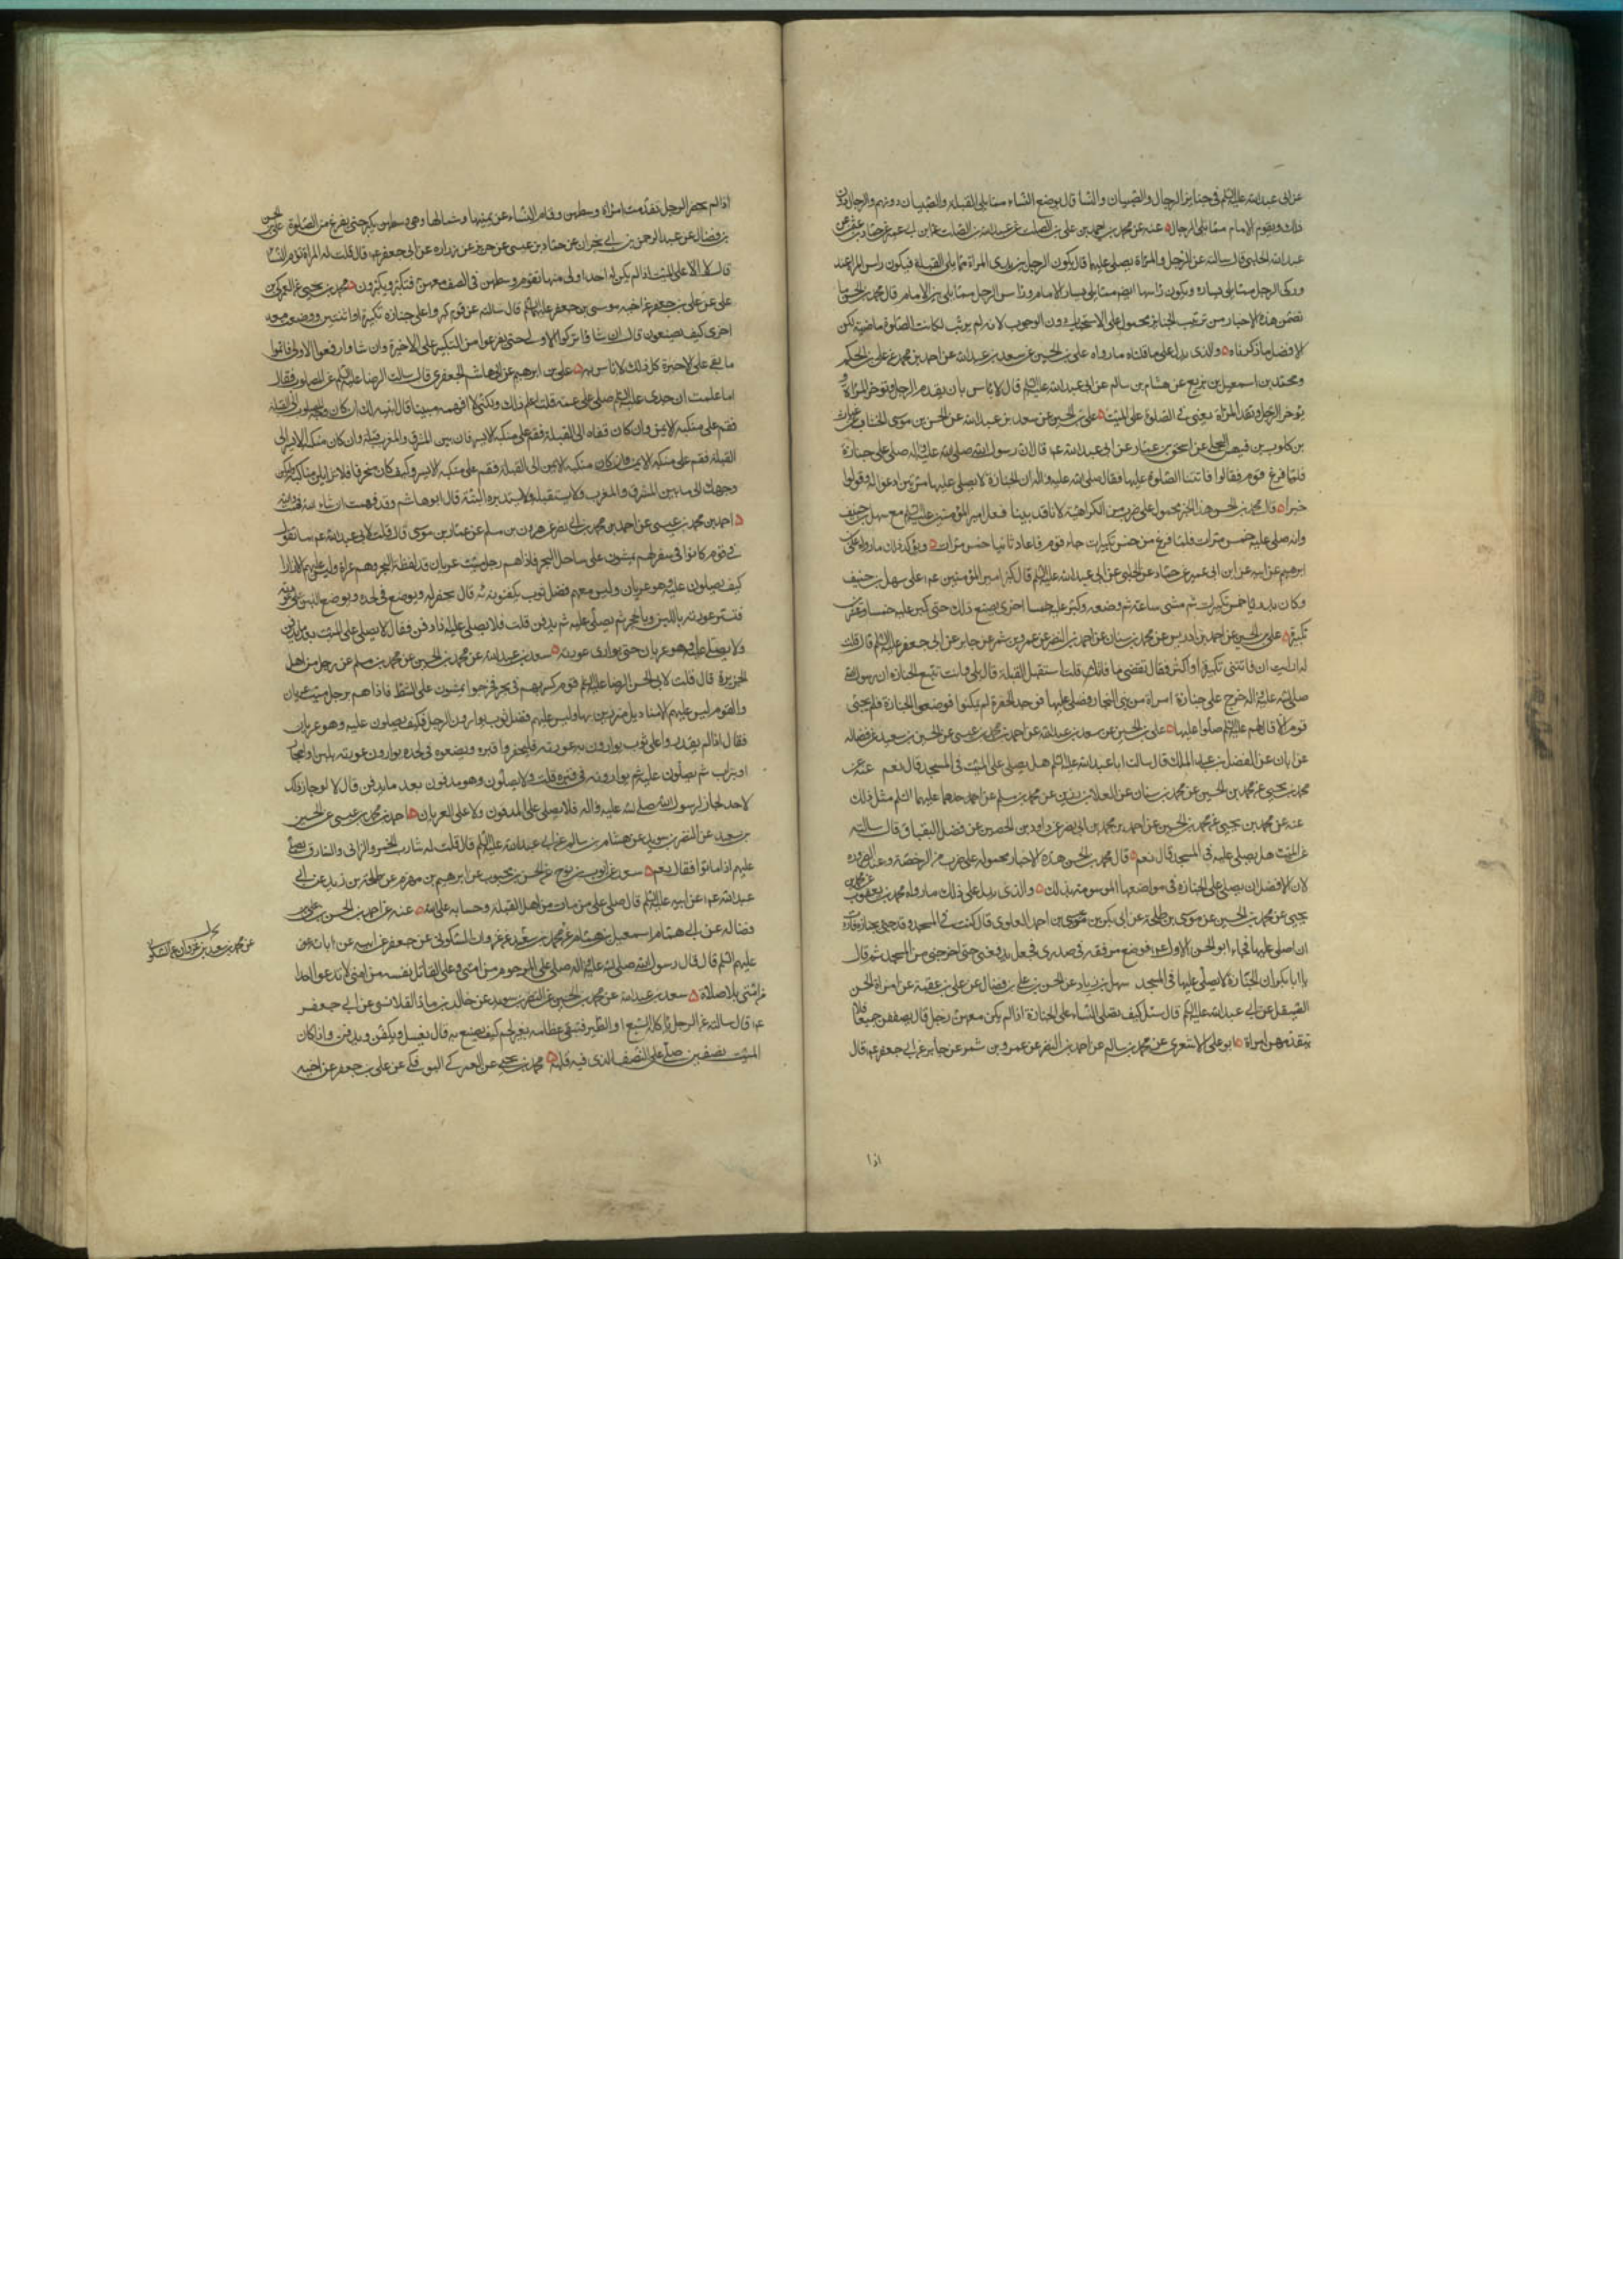 عن ابى عبد الله عليه السلم فى جنايز الرجال والصبيان والنسا قال يوضع النساء مما يلى القبلة والصبيان دونهم والرجال دون
ذلك ويقوم الامام مما يلى الرجال عنه عن محمد بن احمد بن على بن الصلت عن عبد الله بن الصلت عن ابن ابى عمير عن حماد عن
عبد الله الحلبى قال سالته عن الرجل والمراة يصلى عليهما قال يكون الرجل بين يدى المراة مما يلى القبلة فيكون راس المراة عند
وركى الرجل مما يلى يساره ويكون راسها ايضا مما يلى يسار الامام وراس الرجل مما يلى يمين الامام قال محمد بن الحسن ما
تضمن هذه الاخبار من ترتيب الجنايز محمول على الاستحباب دون الوجوب لانه لم يرتب لكانت الصلوة ماضية لكن
الافضل ما ذكرناه والذى يدل على ما قلناه ما رواه على بن الحسين عن سعد بن عبد الله عن احمد بن محمد عن على بن الحكم
ومحمد بن اسمعيل بن بزيع عن هشام بن سالم عن ابى عبد الله عليه السلم قال لا باس بان يقدم الرجل وتوخر المراة و
يوخر الرجل وتقدم المراة يعنى فى الصلوة على الميت على بن الحسين عن سعد بن عبد الله عن الحسن بن موسى الخشاب عن غياث
بن كلوب بن فيهس العجلى عن اسحق بن عمار عن ابى عبد الله عم قال ان رسول الله صلى الله عليه واله صلى على جنازة
فلما فرغ قوم فقالوا فاتتنا الصلوة عليها فقال صلى الله عليه واله ان الجنازة لا يصلى عليها مرتين ادعوا له وقولوا
خيرا قال محمد بن الحسن هذا الخبر محمول على ضرب من الكراهية لانا قد بينا فعل امير المؤمنين عليه السلم مع سهل بن حنيف
وانه صلى عليه خمس مرات فلما فرغ من خمس تكبيرات جاء قوم فاعاد ثانيا خمس مرات ويؤكد ذلك ما رواه على
ابرهيم عن ابيه عن ابن ابى عمير عن حماد عن الحلبى عن ابى عبد الله عليه السلم قال كبر امير المؤمنين عم على سهل بن حنيف
وكان بدريا خمس تكبيرات ثم مشى ساعة ثم وضعه وكبر عليه خمسا اخرى يصنع ذلك حتى كبر عليه خمسا وعشرين
تكبيرة على بن الحسين عن احمد بن ادريس عن محمد بن سنان عن احمد بن النضر عن عمرو بن شمر عن جابر عن ابى جعفر عليه السلم قال قلت
له ارايت ان فاتتنى تكبيرة او اكثر فقال تقضى ما فاتك قلت استقبل القبلة قال بلى وانت تتبع الجنازة ان رسول الله
صلى الله عليه واله خرج على جنازة امراة من بنى النجار فصلى عليها فوجد الحفرة لم يكنوا فوضعوا الجنازة فلم يجئ
قوم الا قال لهم عليه السلم صلوا عليها على بن الحسين عن سعد بن عبد الله عن احمد بن محمد بن عيسى عن الحسين بن سعيد عن فضالة
عن ابان عن الفضل بن عبد الملك قال سالت ابا عبد الله عليه السلم هل يصلى على الميت فى المسجد قال نعم عنه عن
محمد بن يحيى عن محمد بن الحسين عن محمد بن سنان عن العلاء بن رزين عن محمد بن مسلم عن احدهما عليهما السلم مثل ذلك
عنه عن محمد بن يحيى عن محمد بن الحسين عن احمد بن محمد بن ابى نصر عن داود بن الحصين عن فضل البقباق قال سالته
عن الميت هل يصلى عليه فى المسجد قال نعم قال محمد بن الحسن هذه الاخبار محمولة على ضرب من الرخصة وعند الضرورة
لان الافضل ان يصلى على الجنازة فى مواضعها الموسومة بذلك والذى يدل على ذلك ما رواه محمد بن يعقوب عن محمد بن
يحيى عن محمد بن الحسين عن موسى بن طلحة عن ابى بكر بن عيسى بن احمد العلوى قال كنت فى المسجد وقد جئ بجنازة فاردت
ان اصلى عليها فجاء ابو الحسن الاول عم فوضع مرفقه فى صدرى فجعل يدفعنى حتى اخرجنى من المسجد ثم قال
يا ابا بكر ان الجنازة لا يصلى عليها فى المسجد سهل بن زياد عن الحسن بن على بن فضال عن على بن عقبة عن امراة الحسن
الصيقل عن ابى عبد الله عليه السلم قال سئل كيف تصلى النساء على الجنازة اذا لم يكن معهن رجل قال يصففن جميعا ولا
تتقدمهن امراة ابو على الاشعرى عن محمد بن سالم عن احمد بن النضر عن عمرو بن شمر عن جابر عن ابى جعفر عم قال
اذا
اذا لم يحضر الرجل تقدمت امراة وسطهن وقام النساء عن يمينها وشمالها وهى وسطهن تكبر حتى يفرغ من الصلوة على بن الحسن
بن فضال عن عبد الرحمن بن ابى نجران عن حماد بن عيسى عن حريز عن زرارة عن ابى جعفر عم قال قلت له المراة تؤم النساء
قال لا الا على الميت اذا لم يكن احد اولى منها تقوم وسطهن فى الصف معهن فتكبر ويكبرن محمد بن يحيى عن العمركى بن
على عن على بن جعفر عن اخيه موسى بن جعفر عليهما السلم قال سالته عن قوم كبروا على جنازة تكبيرة او اثنتين ووضعت معها
اخرى كيف يصنعون قال ان شاؤا تركوا الاولى حتى يفرغوا من التكبير على الاخيرة وان شاؤا رفعوا الاولى فاتموا
ما بقى على الاخيرة كل ذلك لا باس به على بن ابرهيم عن ابى هاشم الجعفرى قال سالت الرضا عليه السلم عن المصلوب فقال
اما علمت ان جدى عليه السلم صلى على عمه قلت اعلم ذلك ولكنى لا افهمه مبينا قال ابينه لك ان كان وجه المصلوب الى القبلة
فقم على منكبه الايمن وان كان قفاه الى القبلة فقم على منكبه الايسر فان بين المشرق والمغرب قبلة وان كان منكبه الايسر الى
القبلة فقم على منكبه الايمن وان كان منكبه الايمن الى القبلة فقم على منكبه الايسر وكيف كان منحرفا فلا تزايلن مناكبه وليكن
وجهك الى ما بين المشرق والمغرب ولا تستقبله ولا تستدبره البتة قال ابو هاشم وقد فهمت ان شاء الله فهمته والله
احمد بن محمد بن عيسى عن احمد بن محمد بن ابى نصر عن هرون بن مسلم عن عمار بن موسى قال قلت لابى عبد الله عم ما تقول
فى قوم كانوا فى سفر لهم يمشون على ساحل البحر فاذا هم برجل ميت عريان قد لفظه البحر وهم عراة وليس عليهم الا ازار
كيف يصلون عليه وهو عريان وليس معهم فضل ثوب يكفنونه به قال يحفر له ويوضع فى لحده ويوضع اللبن على عورته
فتستر عورته باللبن وبالحجر ثم يصلى عليه ثم يدفن قلت فلا يصلى عليه اذا دفن فقال لا يصلى على الميت بعد ما يدفن
ولا يصلى عليه وهو عريان حتى توارى عورته سعد بن عبد الله عن محمد بن الحسين عن محمد بن مسلم عن رجل من اهل
الجزيرة قال قلت لابى الحسن الرضا عليه السلم قوم كسر بهم فى بحر فخرجوا يمشون على الشط فاذا هم برجل ميت عريان
والقوم ليس عليهم الا مناديل متزرين بها وليس عليهم فضل ثوب يوارون الرجل فكيف يصلون عليه وهو عريان
فقال اذا لم يقدروا على ثوب يوارون به عورته فليحفروا قبره ويضعوه فى لحده يوارون عورته بلبن او احجار
او تراب ثم يصلون عليه ثم يوارونه فى قبره قلت ولا يصلون وهو مدفون بعد ما يدفن قال لا لو جاز ذلك
لاحد لجاز لرسول الله صلى الله عليه واله فلا يصلى على المدفون ولا على العريان احمد بن محمد بن عيسى عن الحسين
بن سعيد عن النضر بن سويد عن هشام بن سالم عن ابى عبد الله عليه السلم قال قلت له شارب الخمر والزانى والسارق يصلى
عليهم اذا ماتوا فقال نعم سعد عن ايوب بن نوح عن الحسن بن محبوب عن ابرهيم بن مهزم عن طلحة بن زيد عن ابى
عبد الله عم عن ابيه عليه السلم قال صلى على من مات من اهل القبلة وحسابه على الله عنه عن احمد بن الحسن بن على بن
فضال عن ابى همام اسمعيل بن همام عن محمد بن سعيد عن غزوان السكونى عن جعفر عن ابيه عن ابائه
عليهم السلم قال قال رسول الله صلى الله عليه واله صلى على المرجوم من امتى وعلى القاتل نفسه من امتى لا تدعوا احدا
من امتى بلا صلاة سعد بن عبد الله عن محمد بن الحسين عن النضر بن سويد عن خالد بن ماد القلانسى عن ابى جعفر
عم قال سالته عن الرجل ياكله السبع او الطير فتبقى عظامه بغير لحم كيف يصنع به قال يغسل ويكفن ويدفن واذا كان
الميت نصفين صلى على النصف الذى فيه قلبه محمد بن يحيى عن العمركى البوفكى عن على بن جعفر عن اخيه
عن محمد بن سعيد بن غزوان عن السكونى